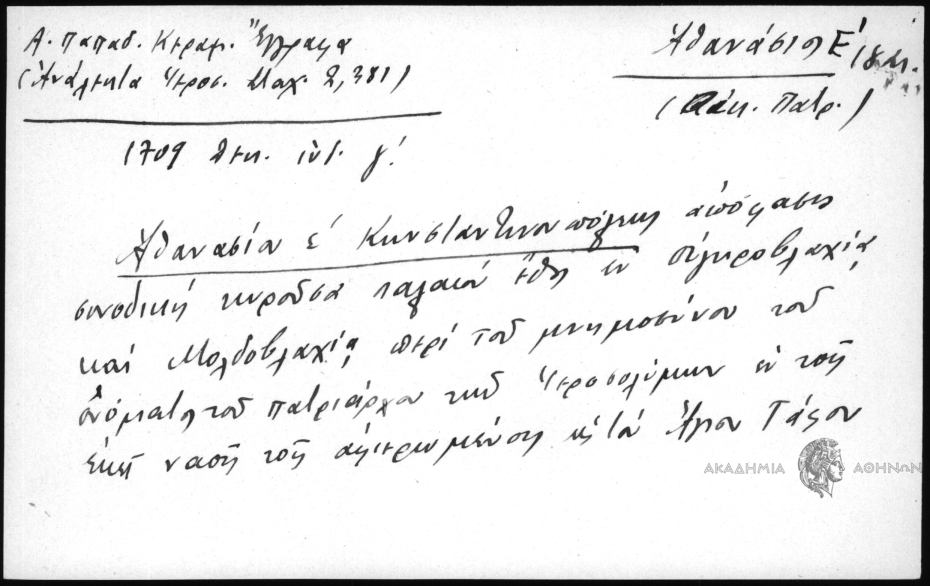 Α. Παπαδ. Κεραμ. Ἔγγραφα
(Ἀνάλεκτα Ἱεροσ. Σταχ. 2,381)
Ἀθανάσιος Ε΄
(Οἰκ. Πατρ.)
1709 Δεκ. ἰνδ. γ΄.
Ἀθανασίου ε΄ Κωνσταντινουπόλεως ἀπόφασις
συνοδική κυροῦσα παλαιόν ἔθος ἐν Οὐγκροβλαχίᾳ
καί Μολδοβλαχίᾳ περί τοῦ μνημοσύνου τοῦ
ὀνόματος τοῦ πατριάρχου τῶν Ἱεροσολύμων ἐν τοῖς
ἐκεῖ ναοῖς τοῖς ἀφιερωμένοις εἰς τόν Ἅγιον Τάφον
ΑΚΑΔΗΜΙΑ ΑΘΗΝΩΝ